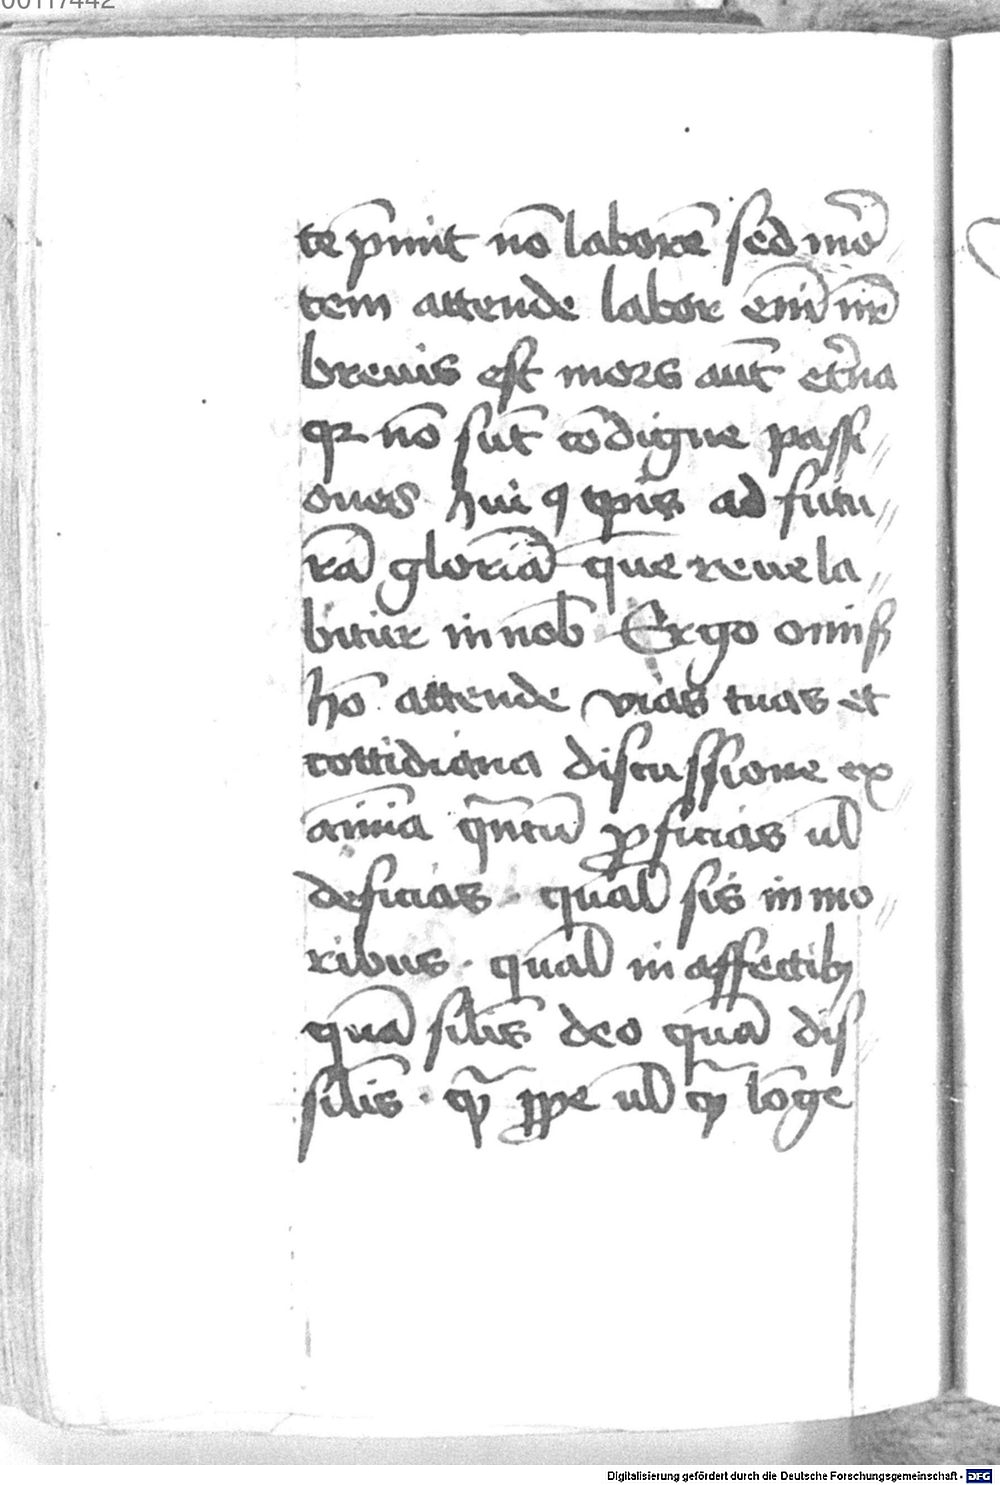 00117442
te p̄mit nō laborē sed mor̄
tem attende labor em̄ nr̄
breuis est mors aut̄ et̄na
qr nō sūt cōdigne passi
ones huiꝰ tp̄is ad futu
rā gloriā que reuela
bitur in nob̄ Ergo om̄is
hō attende vias tuas et
cottidiana discussione ex
amīa qͣntū ꝓficias ul̄
deficias · qual̄ sis in mo
ribus · qual̄ in affectibꝫ
quā sil̄is deo quā dis
sil̄is · qͣꝫ ꝓpe ul̄ qͣꝫ lōge
Digitalisierung gefördert durch die Deutsche Forschungsgemeinschaft - DFG